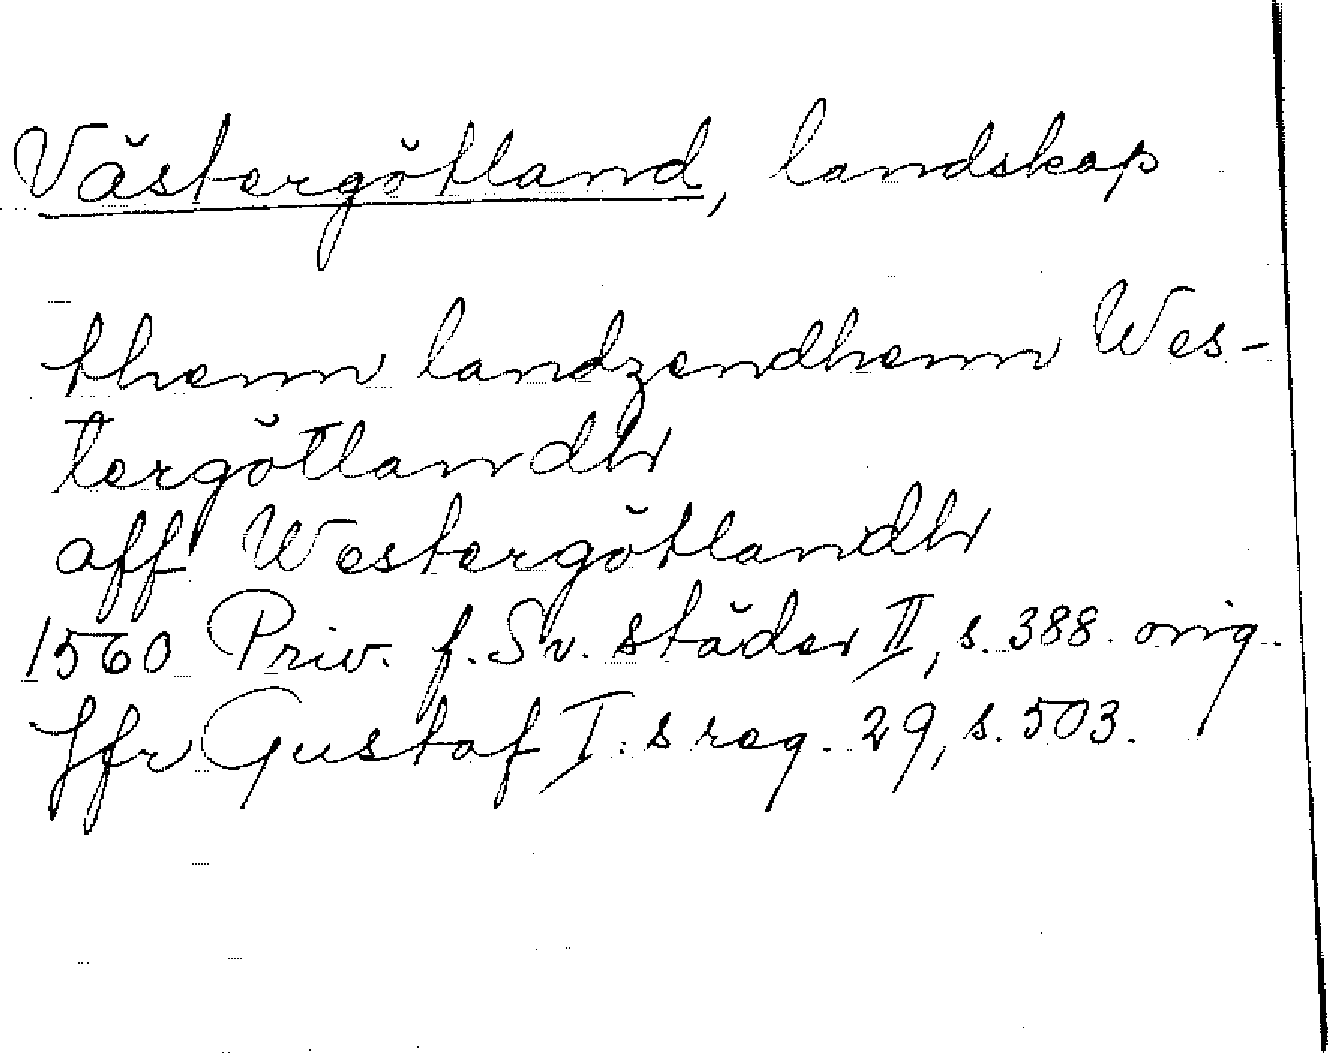 Västergötland, landskap
thenn landzendhenn Wes-
tergötlandh
aff Westergötlandh
1560 Priv. f. Sv. städer II, s. 388. orig.
Jfr Gustaf I:s reg. 29, s. 503.